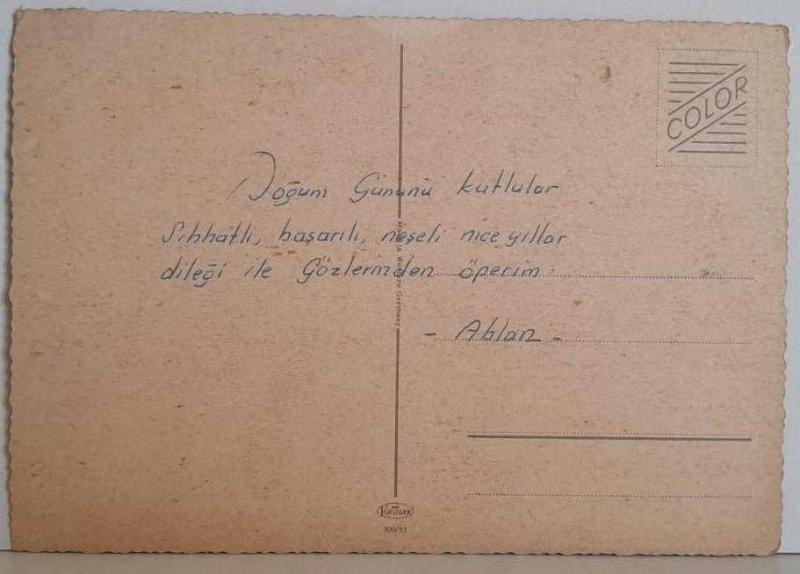 COLOR
Doğum Gününü kutlular
Sıhhatli, başarılı, neşeli nice yıllar
dileği ile Gözlerinden öperim
- Ablan -
Germany